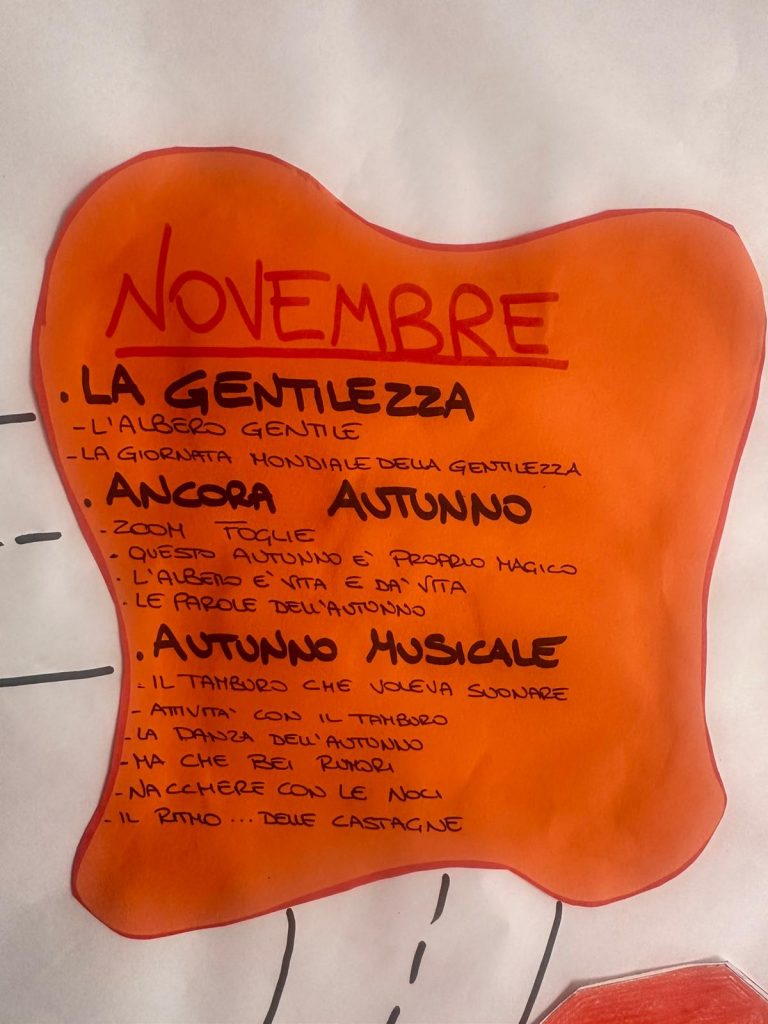 NOVEMBRE
. LA GENTILEZZA
- L'ALBERO GENTILE
- LA GIORNATA MONDIALE DELLA GENTILEZZA
. ANCORA AUTUNNO
- ZOOM FOGLIE
. QUESTO AUTUNNO E' PROPRIO MAGICO
. L'ALBERO E' VITA E DA' VITA
. LE PAROLE DELL'AUTUNNO
. AUTUNNO MUSICALE
- IL TAMBURO CHE VOLEVA SUONARE
- ATTIVITA' CON IL TAMBURO
- LA DANZA DELL'AUTUNNO
- MA CHE BEI RUMORI
- NACCHERE CON LE NOCI
- IL RITMO ... DELLE CASTAGNE